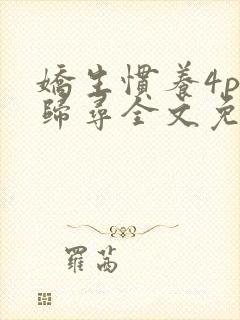 嬌生慣養4p
歸尋全文免
羅茜